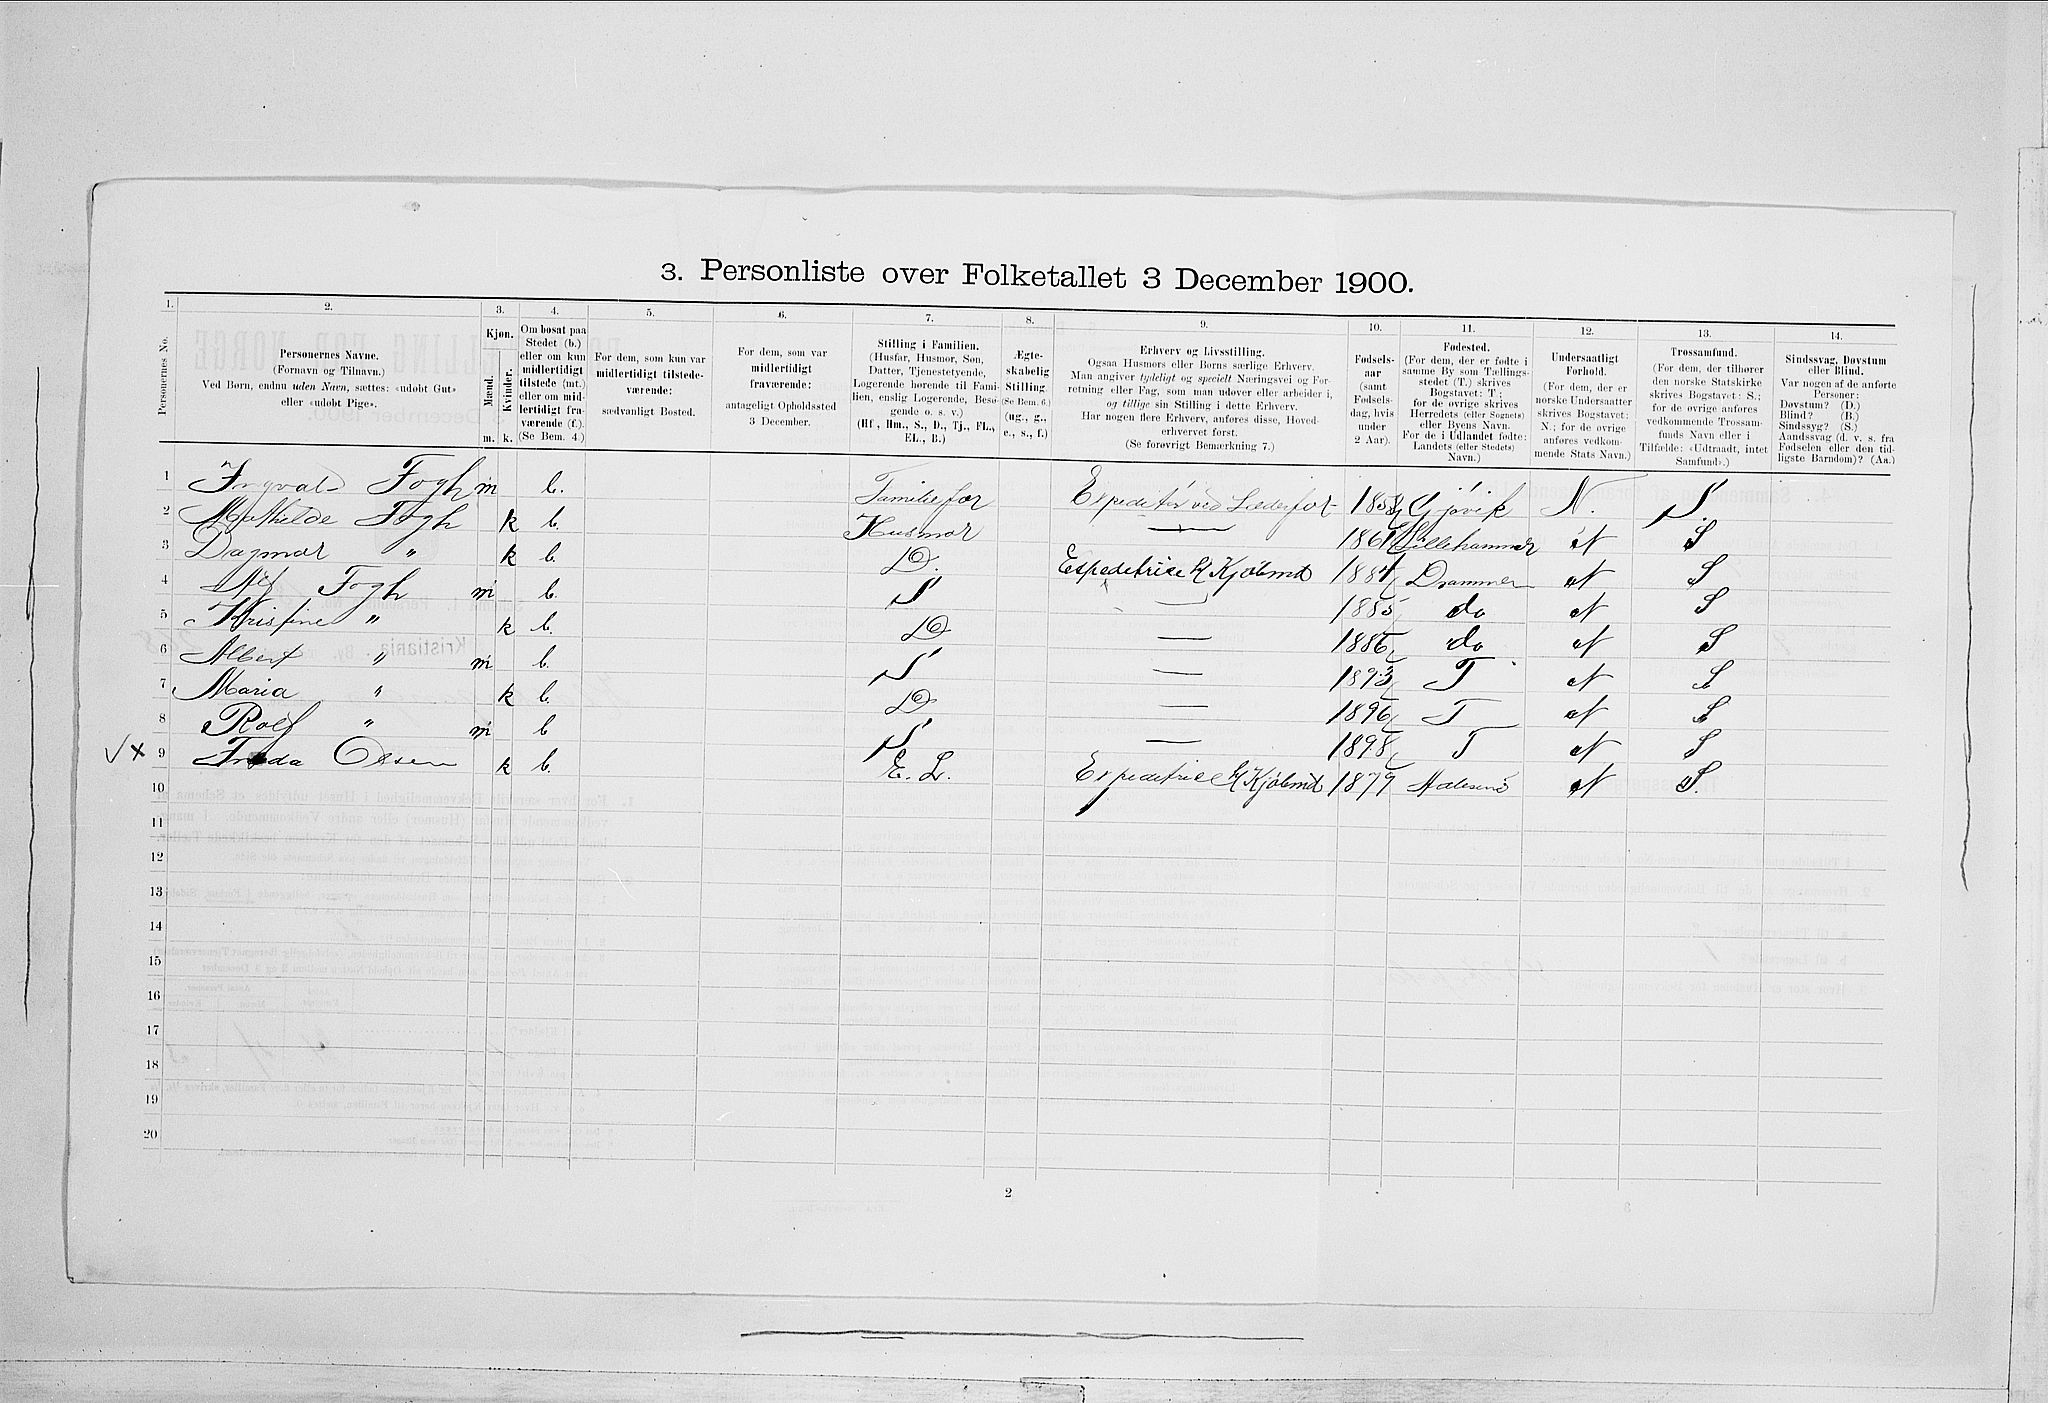 3. Personliste over Folketallet 3 December 1900.
1. 2. 3. 4. 5. 6. 7. 8. 9. 10. 11. 12. 13. 14.
Personernes No.
Personernes Navne.
(Fornavn og Tilnavn.)
Ved Børn, endnu uden Navn, sættes: «udøbt Gut»
eller «udøbt Pige».
Kjøn.
Mænd.
Kvinder.
m. k.
Om bosat paa
Stedet (b.)
eller om kun
midlertidigt
tilstede (mt.)
eller om mid-
lertidigt fra-
værende (f.).
(Se Bem. 4.)
For dem, som kun var
midlertidigt tilstede-
værende:
sædvanligt Bosted.
For dem, som var
midlertidigt
fraværende:
antageligt Opholdssted
3 December.
Stilling i Familien.
(Husfar, Husmor, Søn,
Datter, Tjenestetyende,
Logerende hørende til Fami-
lien, enslig Logerende, Besø-
gende o. s. v.)
(Hf., Hm., S., D., Tj., FL.,
EL., B.)
Ægte-
skabelig
Stilling.
(Se Bem. 6.)
(ug., g.,
e., s., f.)
Erhverv og Livsstilling.
Ogsaa Husmors eller Børns særlige Erhverv.
Man angiver tydeligt og specielt Næringsvei og For-
retning eller Fag, som man udøver eller arbeider i,
og tillige sin Stilling i dette Erhverv.
Har nogen flere Erhverv, anføres disse, Hoved-
erhvervet først.
(Se forøvrigt Bemærkning 7.)
Fødsels-
aar
(samt
Fødsels-
dag, hvis
under
2 Aar).
Fødested.
(For dem, der er fødte i
samme By som Tællings-
stedet (T.) skrives
Bogstavet: T;
for de øvrige skrives
Herredets (eller Sognets)
eller Byens Navn.
For de i Udlandet fødte:
Landets (eller Stedets)
Navn.)
Undersaatligt
Forhold.
(For dem, der er
norske Undersaatter
skrives Bogstavet:
N.; for de øvrige
anføres vedkom-
mende Stats Navn.)
Trossamfund.
(For dem, der tilhører
den norske Statskirke
skrives Bogstavet: S.;
for de øvrige anføres
vedkommende Trossam-
funds Navn eller i
Tilfælde: «Udtraadt, intet
Samfund».)
Sindssvag, Døvstum
eller Blind.
Var nogen af de anførte
Personer:
Døvstum? (D.)
Blind? (B.)
Sindssyg? (S.)
Aandssvag (d. v. s. fra
Fødselen eller den tid-
ligste Barndom)? (Aa.)
1 Ingvald Fogh m b. Familiefar Expeditør ved Gjøvik N. S.
2 Mathilde Fogh k b. Husmor — 1861 Lillehammer N S
3 Dagmar " k b. D. Expeditrice Kjøbmd 1884 Drammen N S
4 Alf Fogh m b. S — 1885 do N S
5 Kristine " k b. D — 1886 do N S
6 Albert " m b. S — 1893 T N S
7 Maria " k b. D — 1896 T N S
8 Rolf " m b S — 1898 T N S
√x 9 Olsen k b. E. L. Expeditrice Kjøbmd 1879 Aalesund N S.
10
11
12
13
14
15
16
17
18
19
20
2